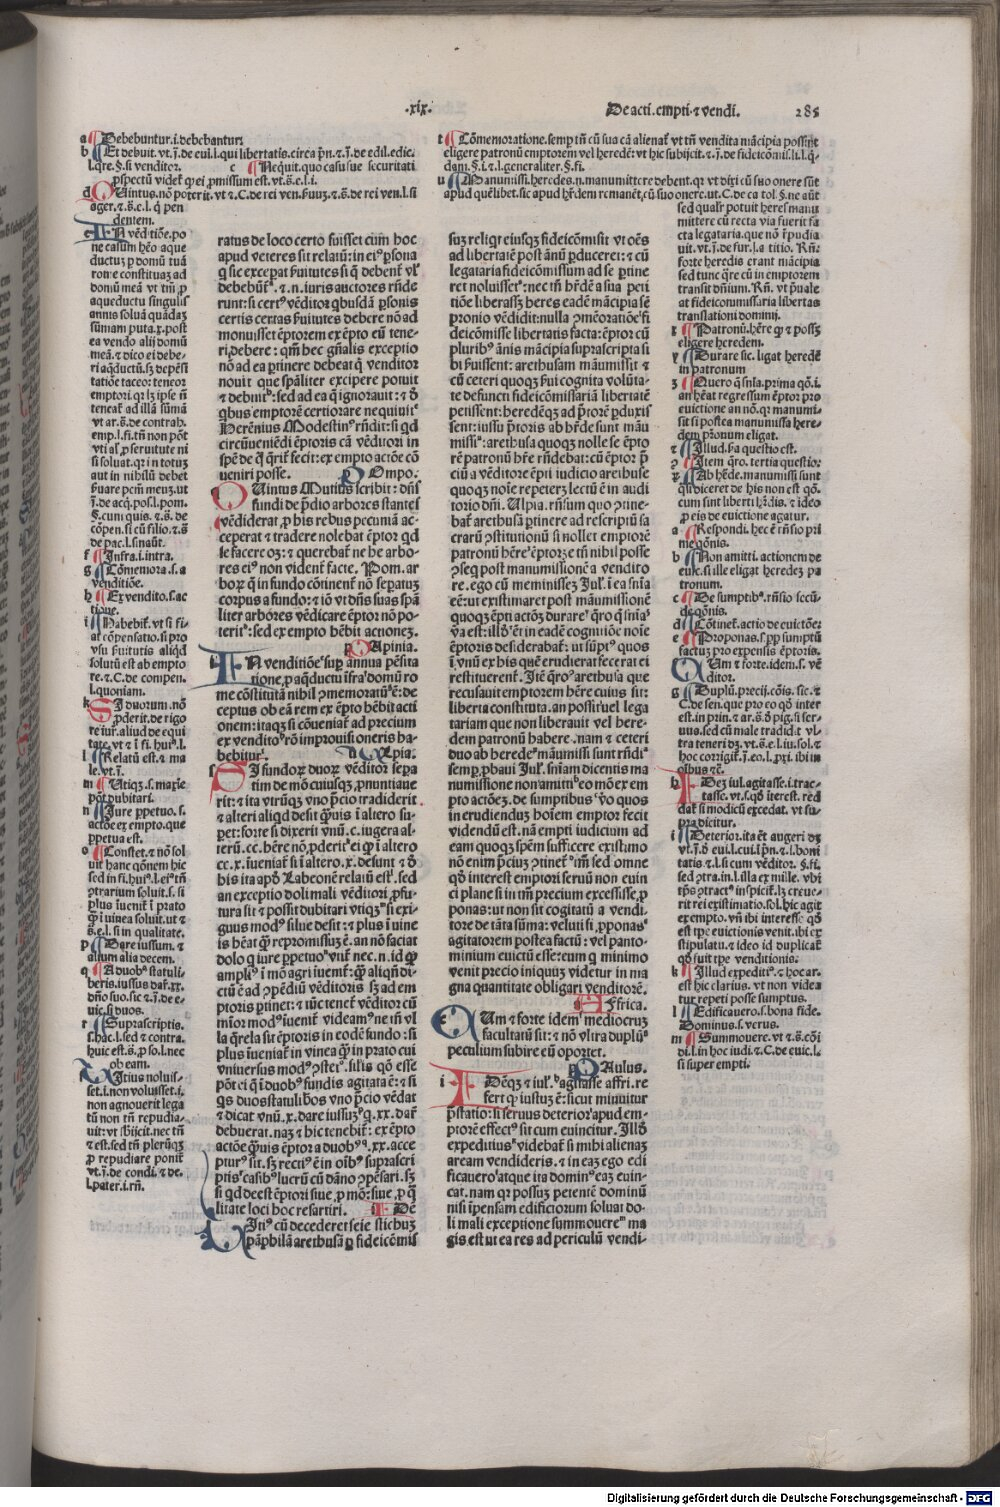 .xix.
De acti. empti. ⁊ vendi.
285
a Debebuntur.i.debebantur.
b Et debuit. vt.j.de eui.l.qui libertatis.circa pn̄.⁊.j.de edil.edic.
l.q̄re.§.si venditor.
c Nequit.quo casu sue securitati
pspectū videt̄ ꝙ ei ꝓmissum est.vt.s̄.e.l.i.
d Quintus.nō poterit.vt ⁊.C.de rei ven.
ager.⁊.s̄.e.l.q̄ pen
dentem.
e In vēditiōe.po
ne casum hēo aque
ductuꝫ ꝑ domū tuā
ron e constituaꝫ ad
domū meā vt tm̄ ꝓ
aqueductu singulis
annis soluā quādaꝫ
sūmam puta.x.post
ea vendo alij domū
meā.⁊ dico ei debe-
ri aq̄ductū.sꝫ de pēsi
tatiōe taceo:teneor
emptori.qr lꝫ ipse nō
teneat̄ ad illā sūmā
vt ar.s̄.de contrah.
emp.l.fi.tn̄ non pōt
vti aq̄ ꝑ seruitute ni
si soluat.qr in totuꝫ
aut in nihilū debet
§.cum quis.⁊.s̄.de
cōpen.si cū filio.⁊.s̄
de pac.l.si nauī.
f Infra.i.intra.
g Cōmemora.s.a
venditiōe.
h Ex vendito.s.ac
tione.
i Habebit̄.vt si fi-
at cōpensatio.si pro
vsu s̄uitutis aliqd
solutū est ab empto
re.⁊.C.de compen.
l.quoniam.
k Si duorum.nō
ꝓderit.de rigo
re iur.aliud de equi
tate.vt ⁊ i fi.huiꝰ.l.
l Relatū est.⁊ ma
le.vt.j.
m Utiqꝫ.s.maxie
pōt dubitari.
n Jure ꝑpetuo.s.
actōe ex empto.que
ꝑpetua est.
o Constet.⁊ nō sol
uit hanc q̄ōnem hic
sed in fi.huiꝰ.l.ei
ꝯtrarium soluit.s.si
plus iuenit̄ ī prato
q̄ꝫ i uinea soluit.ut ⁊
s̄.e.l.si in qualitate.
p Dare iussum.⁊
alium alia decem.
q A duobꝰ statuli-
beris.iussus dat̄.xx.
dn̄o suo.sic ⁊.j.de e-
uic.si duos.
r Suprascriptis.
s.hac.l.sed ⁊ contra.
huic est.s̄.ꝓ so.l.nec
ob eam.
s Titius noluis-
set.i.non voluisset.i.
non agnouerit lega
tū non tn̄ repudia-
uit:vt sb̄ijcit.nec tn̄
⁊ est.sed tn̄ pleruqꝫ
ꝓ repudiare ponit̄
vt.j.de condi.⁊ de.
l.pater.i.rn̄.
ratus de loco certo fuisset cum hoc
apud veteres sit relatū:in eiꝰ ꝑsona
q̄ sic exceꝑat s̄uitutes si q̄ debent̄ vl̓
debebūt̄.⁊.n.iuris auctores rn̄de
runt:si certꝰ vēditor q̄busdā ꝑsonis
certis certas s̄uitutes debere nō ad
monuisset ēptorem ex ēpto eū tene-
ri debere:qm̄ hec gn̄alis exceptio
nō ad ea ꝑtinere debeat q̄ venditor
nouit que spāliter excipere potuit
⁊ debuit:sed ad ea q̄ ignorauit:⁊ d̄
qbus emptorē certiorare nequiuit.
Herēnius Modestinꝰ rn̄dit:si qd̓
circūueniēdi ēptoris cā vēditori in
spē de q̄ q̄rit̄ fecit:ex empto actōe cō
ueniri posse.
Pompo.
Quintus Mutius scribit:dn̄s
fundi de p̄dio arbores stantes
vēdiderat ꝓ his rebus pecuniā ac-
ceperat ⁊ tradere nolebat ēptor qd̓
se facere oꝫ:⁊ querebat̄ ne he arbo-
res eiꝰ non vident̄ facte. Pom. ar
borꝫ q̄ in fundo cōtinent̄ nō seꝑatuꝫ
corpus a fundo:⁊ iō vt dn̄s suas spā
liter arbores vēdicare ēptor nō po-
terit:sed ex empto hēbit actioneꝫ.
Papinia.
In venditiōe sup̄ annua pēsita
tione ꝓ aq̄ductu ifra domū ro
me cōstitutā nihil ꝯmemoratū ē:de
ceptus ob eā rem ex ēpto hēbit acti
onem:itaqꝫ si cōueniat̄ ad precium
ex vendito rō improuisi oneris ha-
bebitur.
Ulpia.
Si fundorꝫ duorꝫ vēditor sepa
tim de mō cuiusqꝫ ꝓnuntiaue
rit:⁊ ita vtrūqꝫ vno p̄cio tradiderit
⁊ alteri aliqd̓ desit q̄uis i altero su-
pet:forte si dixerit vnū.c.iugera al-
terū.cc.hēre nō ꝓderit ei q̓ i altero
cc.x.iueniāt̄ si i altero.x.desunt ⁊ d̄
his ita apd̓ Labeonē relatū est.sed
an exceptio doli mali vēditori ꝓfu-
tura sit ⁊ possit dubitari vtiqꝫ si exi-
guus modꝰ silue desit:⁊ plus i vine
is hēat q̄ꝫ repromissuꝫ ē.an nō faciat
dolo q̄ iure ꝑpetuo vtit̄ nec.n.id q̄
ampliꝰ i mō agri iuenit̄:q̄ꝫ aliqn̄ di-
ctū ē ad ꝯpēdiū vēditoris sꝫ ad em
ptoris ꝑtinet:⁊ tūc tenet̄ vēditor cū
miōr modꝰ iuenit̄ videamꝰ ne tn̄ vl̓
la q̄rela sit ēptoris in eodē fundo:si
plus iueniat̄ in vinea q̄ꝫ in prato cū
vniuersus modꝰ ꝯstet. silis qō esse
pōt ei q̄ i duobꝰ fundis agitata ē:⁊ si
qs duos statulibos vno p̄cio vēdat
⁊ dicat vnū.x.dare iussuꝫ q̄.xx.dar̄
debuerat.naꝫ ⁊ hic tenebit̄:ex ēpto
actōe q̄uis ēptor a duobꝰ.xx.acce
pturꝰ sit.sꝫ rectiꝰ ē in oībꝰ suprascri
ptis casibꝰ lucrū cū dāno ꝯpēsari.sꝫ
si qd̓ deest ēptori siue ꝓ mō:siue ꝓ q̄
litate loci hoc resartiri.
Idē
Titiꝰ cū decederet seie stichuꝫ
pāphilā arethusā ꝑ fideicōmis
t Cōmemoratione.semꝑ tn̄ cū sua cā alienat̄ vt tn̄ vendita mācipia possint
eligere patronū emptorem vel heredē:vt hic subijcit.⁊.j.de fideicōmis.li.l.q̄-
dam.§.i.⁊.l.generaliter.§.fi.
u Manumissi.heredes.n.manumittere debent.qr vt dixi cū suo onere sūt
apud quēlibet.sic apud hr̄dem remanēt,cū suo onere.ut.C.de ca tol.§.ne aūt
suꝫ reliqr̄ eiusqꝫ fideicōmisit vt oēs
ad libertatē post annū ꝑducerei:⁊ cū
legataria fideicōmissum ad se ꝑtine
ret noluisset:nec tn̄ hēdē a sua peti
tiōe liberasꝫ heres eadē mācipia sē
pronio vēdidit:nulla ꝯmēoratiōe fi
deicōmisse libertatis facta:ēptor cū
pluribꝰ ānis mācipia suprascripta si
bi s̄uissent:arethusam māumisit ⁊
cū ceteri quoqꝫ s̄ui cognita volūta-
te defuncti fideicōmissariā libertatē
petissent:heredēqꝫ ad p̄torē ꝑduxis
sent:iussu p̄toris ab hēde sunt māu
missi:arethusa quoqꝫ nolle se ēpto
rē patronū hr̄e rn̄debat:cū ēptor p̄
ciū a vēditore ēpti iudicio arethuse
quoqꝫ noīe repeterꝫ lectū ē in audi
torio dn̄i. Ulpia. rn̄sum quo ꝯtine-
bat̄ arethusā ꝑtinere ad rescriptū sa
crarū ꝯstitutionū si nollet emptorē
patronū hēre ēptorꝫ tn̄ nihil posse
ꝯseq̄ post manumissionē a vendito
re.ego cū meminissem Jul.i ea snīa
eē:ut existimaret post māumissionē
quoqꝫ durare ēptori actōꝫ
vnū ex his quē erudierat fecerat ei
restituerent̄. Itē q̄ro arethusa que
recusauit emptorem hēre cuius sit:
liberta constituta.an possit uel lega
tariam que non liberauit vel here-
dem patronū habere.nam ⁊ ceteri
duo ab herede māumissi sunt rn̄di
semꝑ ꝓbaui Jul.snīam dicentis ma
numissione non amitti eo mō ex em
pto actōeꝫ. de sumptibus ꝟo quos
in erudienduꝫ hoīem emptor fecit
videndū est.nā empti iudicium ad
eam quoqꝫ spēm sufficere existimo
nō enim p̄ciuꝫ ꝯtinet tm̄ sed omne
qd̓ interest emptori seruū non euin
ci plane si in tm̄ precium excessisse ꝓ
ponas:ut non sit cogitatū a vendi
tore de tāta sūma:veluti si ꝓponas
agitatorem postea factū:vel panto-
mimium euictū esse:eum q̄ minimo
venit precio iniquuꝫ videtur in ma
gna quantitate obligari venditorē.
Africa.
Cum ⁊ forte idem mediocruꝫ
facultatū sit:⁊ nō vltra duplū
peculium subire eū oportet.
Paulus.
Idēqꝫ ⁊ iul. agitasse affri.re
fert q̓ iustuꝫ ē:sicut minuitur
p̄statio:si seruus deterior apud em-
ptorē effectꝰ sit cum euincitur. Illd̓
expeditius videbat̄ si mihi alienaꝫ
aream vendideris.⁊ in eaꝫ ego edi
ficauero atque ita dominꝰ eaꝫ euin-
cat.nam qr possuꝫ petentē dominū
nisi īpensam edificiorum soluat do-
li mali exceptione summouere ma
gis est ut ea res ad periculū vendi-
sed qualr̄ potuit heres manu
mittere cū recta via fuerit fa
cta legataria.que nō r̄pudia
uit.vt.j.de fur.l.a titio. Rn̄:
forte heredis erant mācipia
sed tunc q̄re cū in emptorem
transit dn̄ium.Rn̄.vt p̄uale
at fideicomissaria libertas
translationi dominij.
x Patronū.hēre q̄ ⁊ possꝫ
eligere heredem.
y Durare sic.ligat heredē
in patronum
z Quero q̄ snīa.prima qō.i.
an hēat regressum ēptor pro
euictione an nō.qr manumi-
sit si postea manumissa here-
dem pr̄onum eligat.
⁊ Illud.s̄a questio est.
Item q̄ro.tertia questio:
Ab hēde.manumissi sunt
qsi diceret de his non est qō.
cum sunt liberti hr̄dis.⁊ ideo
ꝓ eis de euictione agatur.
a Respondi.hec ē rn̄sio pri
me qōnis.
b Non amitti.actionem de
euic.si ille eligat heredeꝫ pa
tronum.
c De sumptibꝰ.rn̄sio secū-
de qōnis.
d Cōtinet.actio de euictōe:
e Proponas.s.ꝓp sumptū
factuꝫ pro expensis ēptoris.
f Cum ⁊ forte.idem.s.vē
ditor.
g Duplū.precij.cōis.sic.⁊
C.de sen.que pro eo qd̓ inter
est.in prin.⁊ ar.s̄.d̄ pig.si ser-
uus.sed cū male tradidit vl-
tra teneri dꝫ.vt.s̄.e.l.iu.sol.⁊
hoc corrigit̄.j.eo.l.ꝓxi.ibi in
oībus ⁊c̄.
h Idēqꝫ iul.agitasse.i.trac-
tasse.vt.s.qd̓ iterest.red
dat̄ si modicū excedat.vt su-
pra dicitur.
i Deterior.ita ēt augeri dꝫ
vt.j.d̄ eui.l.cui.i pn̄.⁊.i.boni
tatis.⁊.l.si cum vēditor.§.fi.
sed ꝯtra.in.l.illa ex mille.vbi
tp̄s ꝯtractꝰ inspicit̄.lꝫ creue-
rit rei existimatio.sol.hic agit
ex empto.vn̄ ibi interesse qd̓
est tp̄e euictionis venit.ibi ex
stipulatu.⁊ ideo id duplicat̄
qd̓ fuit tp̄e venditionis.
k Illud expeditiꝰ.⁊ hoc ar-
est hic clarius.vt non videa
tur repeti posse sumptus.
l Edificauero.s.bona fide.
Dominus.s.verus.
m Summouere.vt ⁊.s̄.cōi
di.l.in hoc iudi.⁊.C.de euic.l.
si super empti.
Digitalisierung gefördert durch die Deutsche Forschungsgemeinschaft - DFG